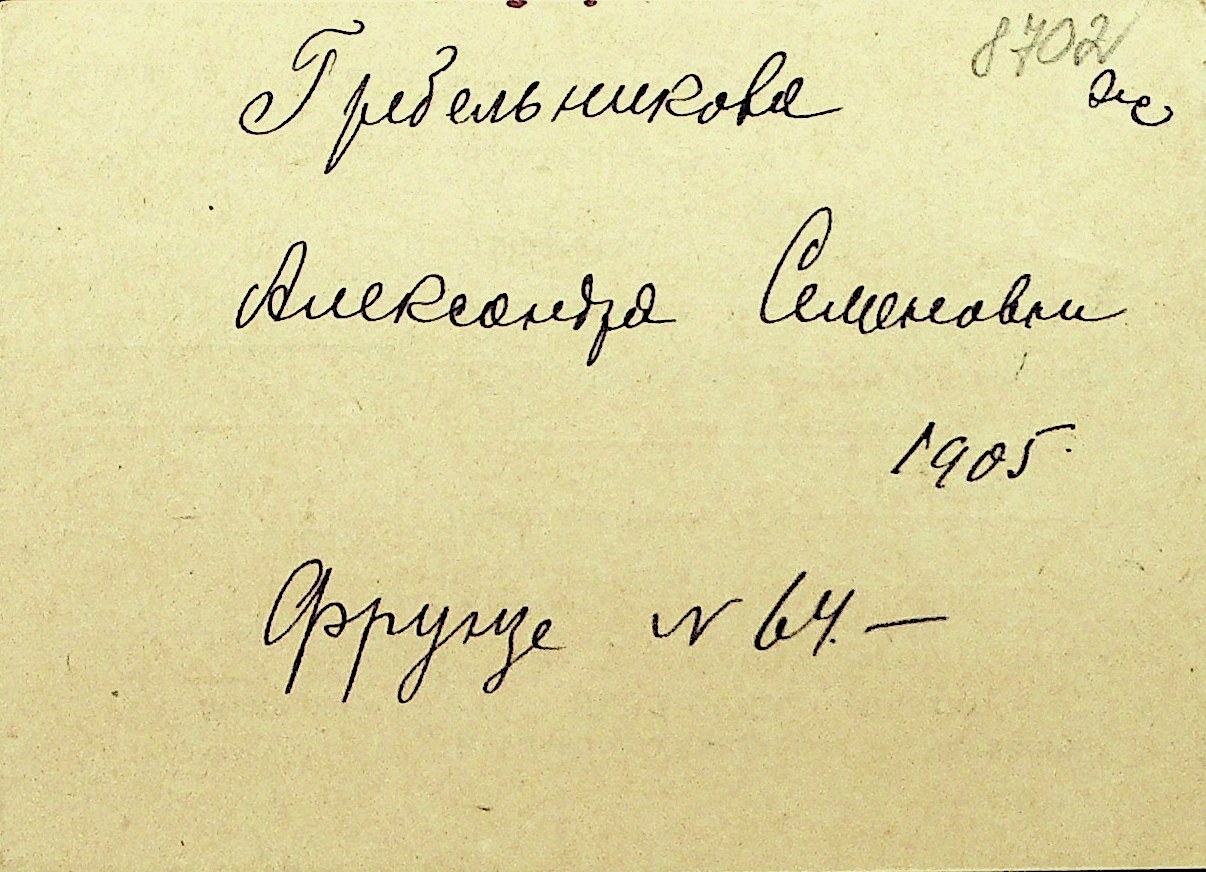 8702
Гребельникова
Александра Семеновни
1905.
Фрунзе № 64. —